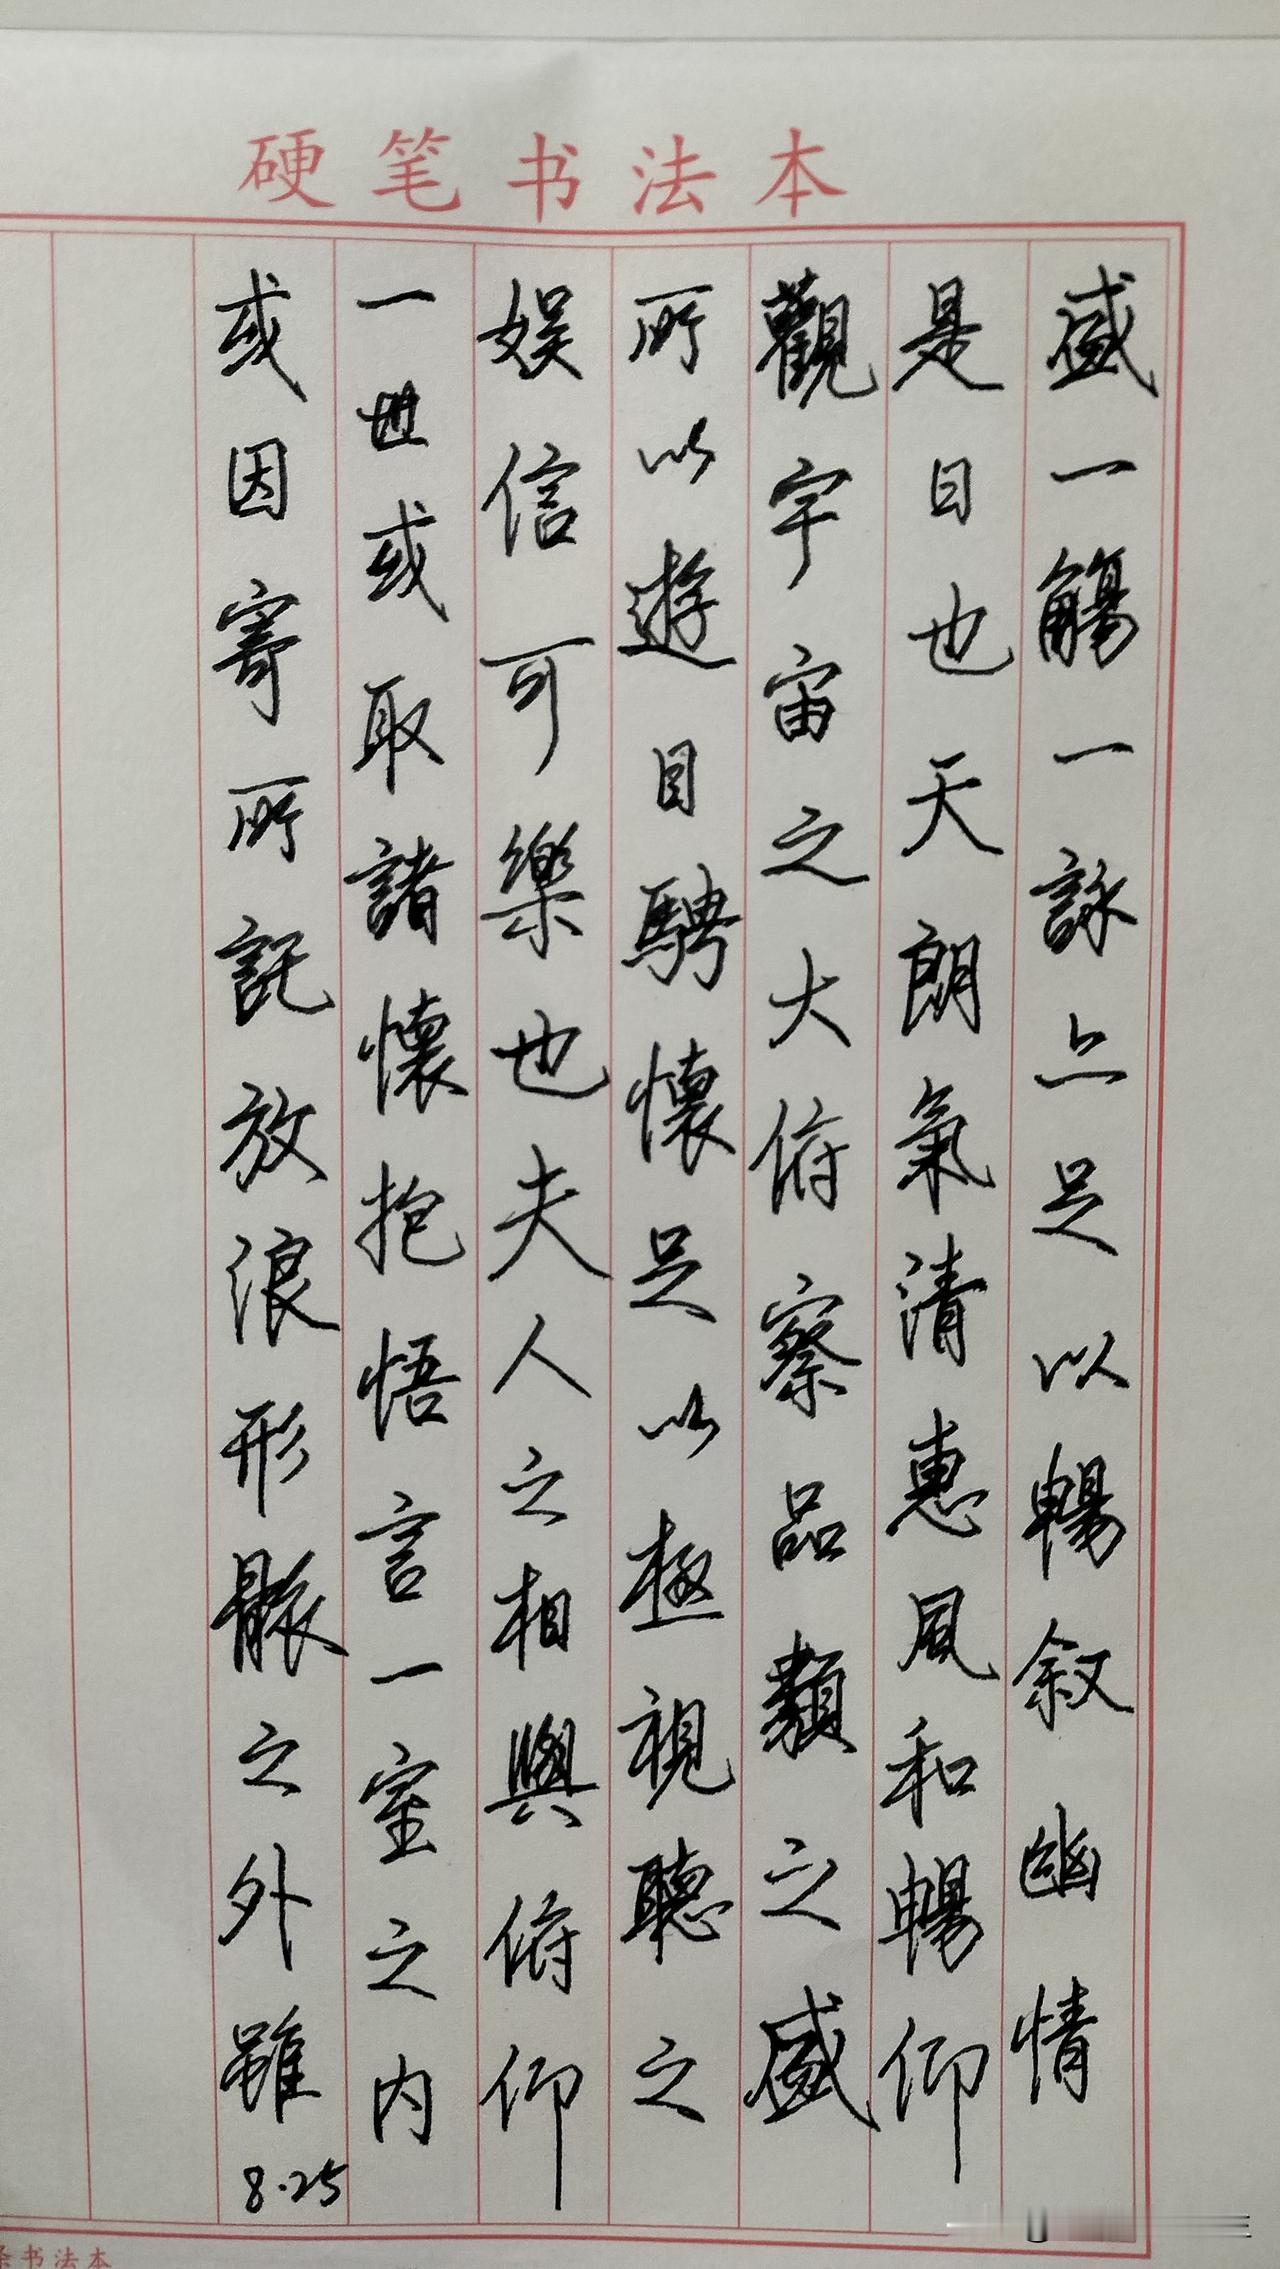 硬笔书法本
盛一觴一詠亦足以暢叙幽情
是日也天朗氣清惠風和暢仰
觀宇宙之大俯察品類之盛
所以遊目騁懷足以極視聽之
娱信可樂也夫人之相與俯仰
一世或取諸懷抱悟言一室之内
或因寄所託放浪形骸之外雖
8.25
书法本